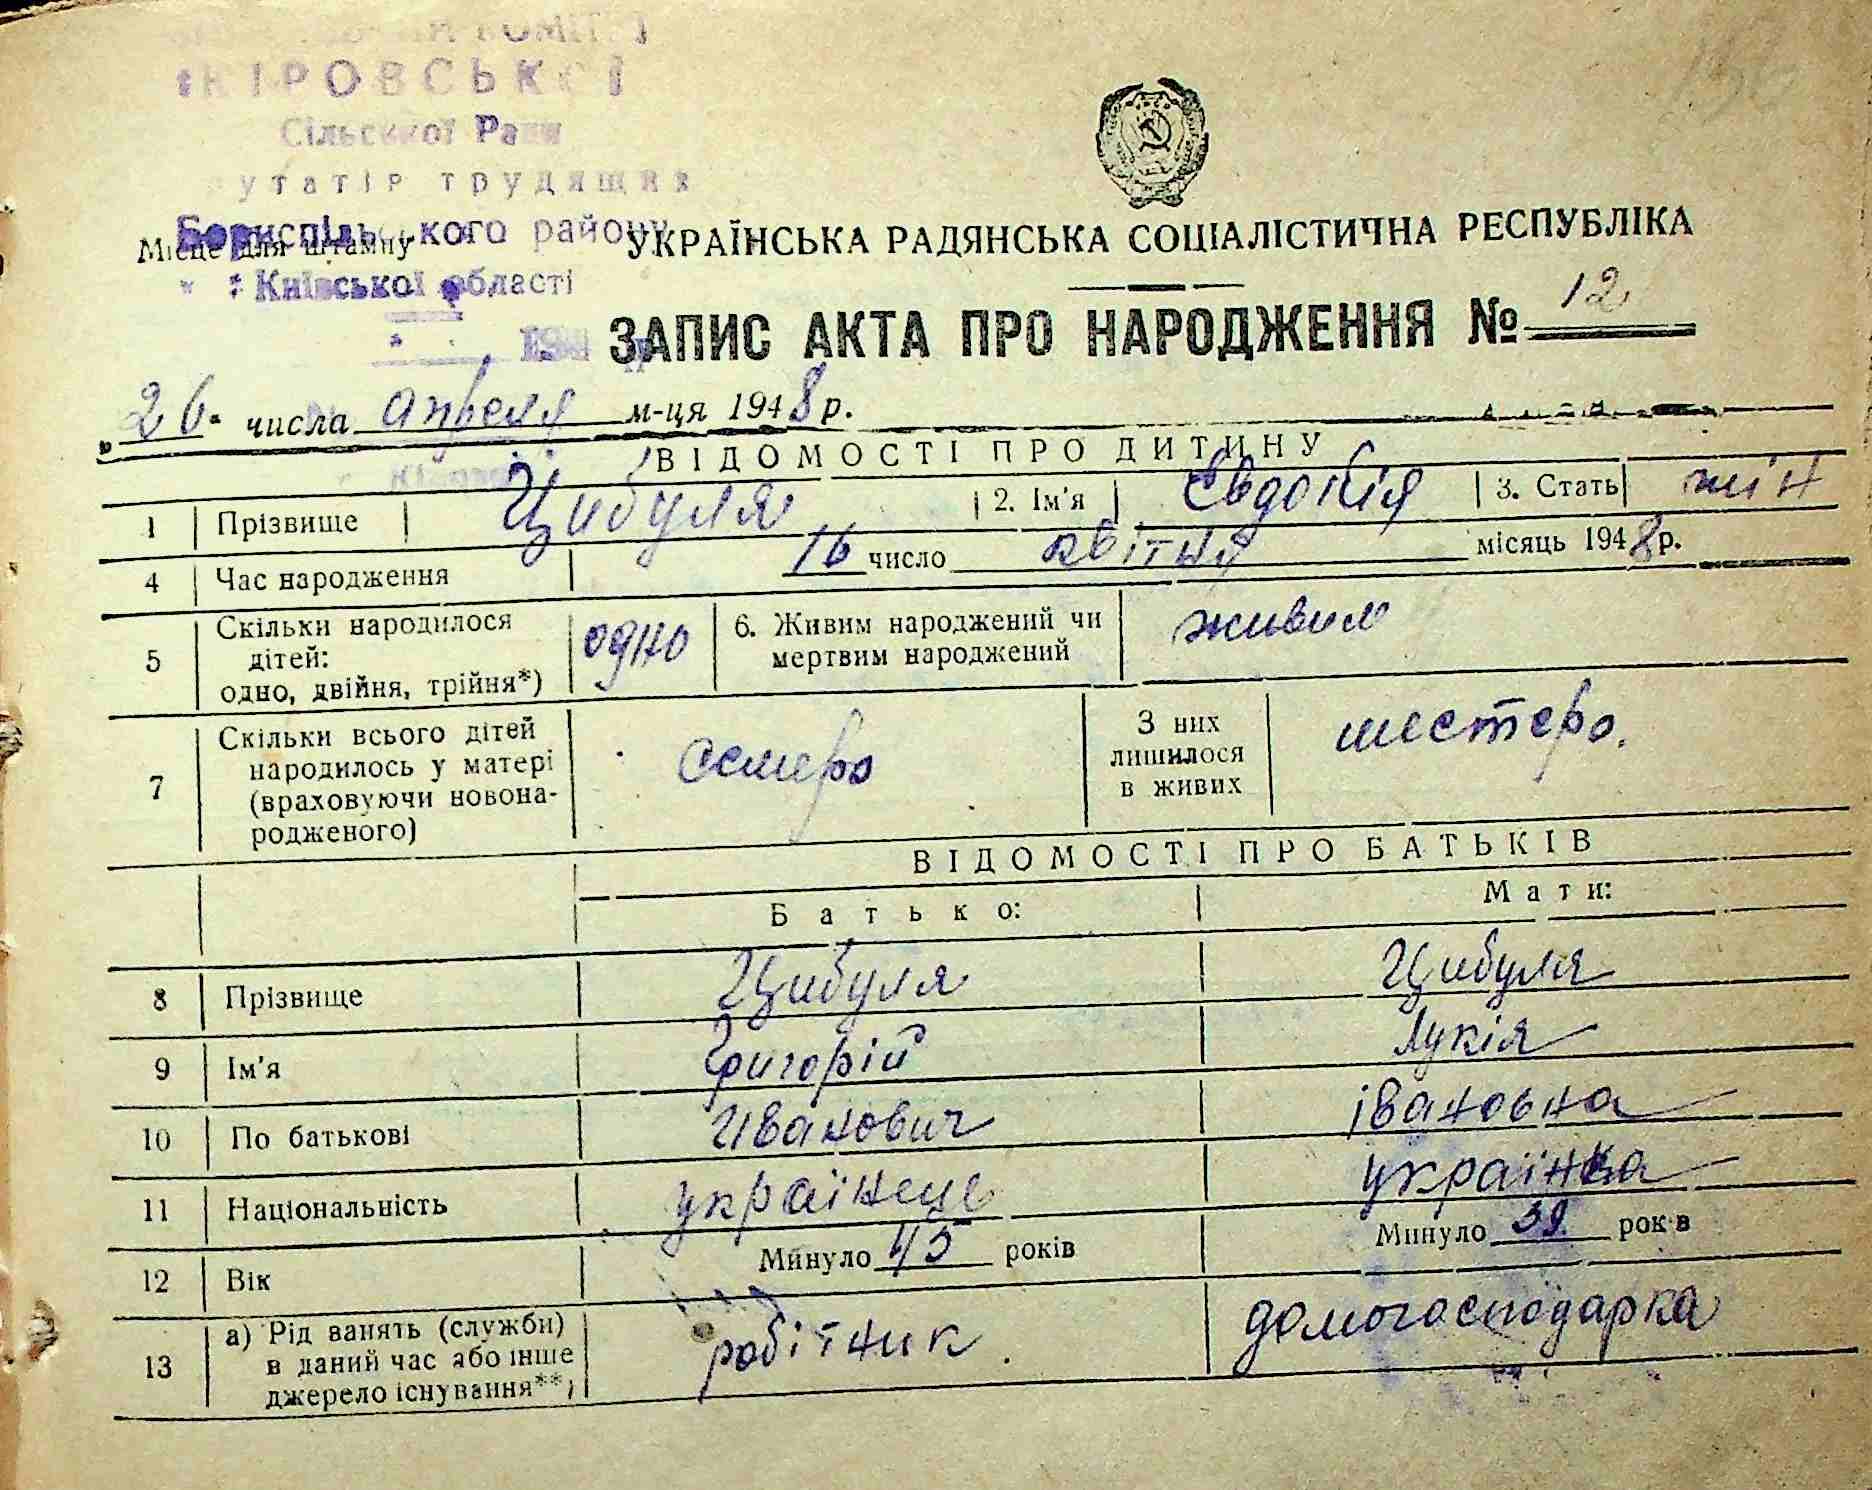 КІРОВСЬКОЇ
Сільської Ради
утатів трудящих
Бориспільського району
Місце для штампу
Київської області
УКРАЇНСЬКА РАДЯНСЬКА СОЦІАЛІСТИЧНА РЕСПУБЛІКА
ЗАПИС АКТА ПРО НАРОДЖЕННЯ № 12
„26" числа апреля м-ця 1948 р.
ВІДОМОСТІ ПРО ДИТИНУ
1 Прізвище Цибуля 2. Ім'я Євдокія 3. Стать жін
4 Час народження 16 число квітня місяць 1948 р.
5 Скільки народилося дітей: одно, двійня, трійня*) одно 6. Живим народжений чи мертвим народжений живим
7 Скільки всього дітей народилось у матері (враховуючи новонародженого) семеро З них лишилося в живих шестеро.
ВІДОМОСТІ ПРО БАТЬКІВ
Батько: Мати:
8 Прізвище Цибуля Цибуля
9 Ім'я Григорій Лукія
10 По батькові Иванович івановна
11 Національність українець українка
12 Вік Минуло 45 років Минуло 39 років
13 а) Рід занять (служби) в даний час або інше джерело існування**) робітник. домогосподарка